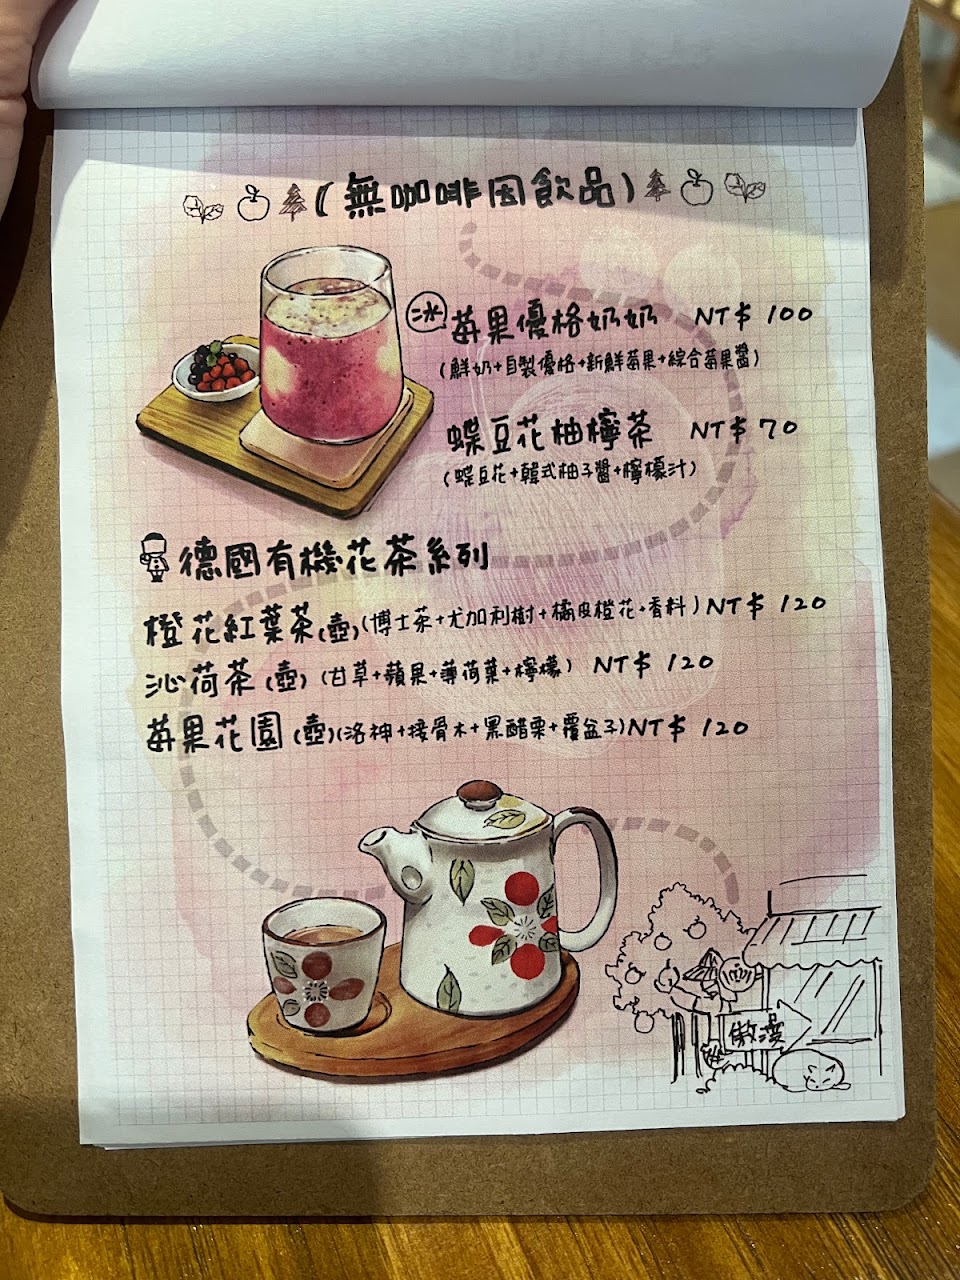 (無咖啡因飲品)
冰 莓果優格奶奶 NT$ 100
(鮮奶+自製優格+新鮮莓果+綜合莓果醬)
蝶豆花柚檸茶 NT$ 70
(蝶豆花+韓式柚子醬+檸檬汁)
德國有機花茶系列
橙花紅葉茶(壺)(博士茶+尤加利樹+橘皮橙花+香料) NT$ 120
沁荷茶(壺) (甘草+蘋果+薄荷葉+檸檬) NT$ 120
莓果花園(壺)(洛神+接骨木+黑醋栗+覆盆子) NT$ 120
傲漫